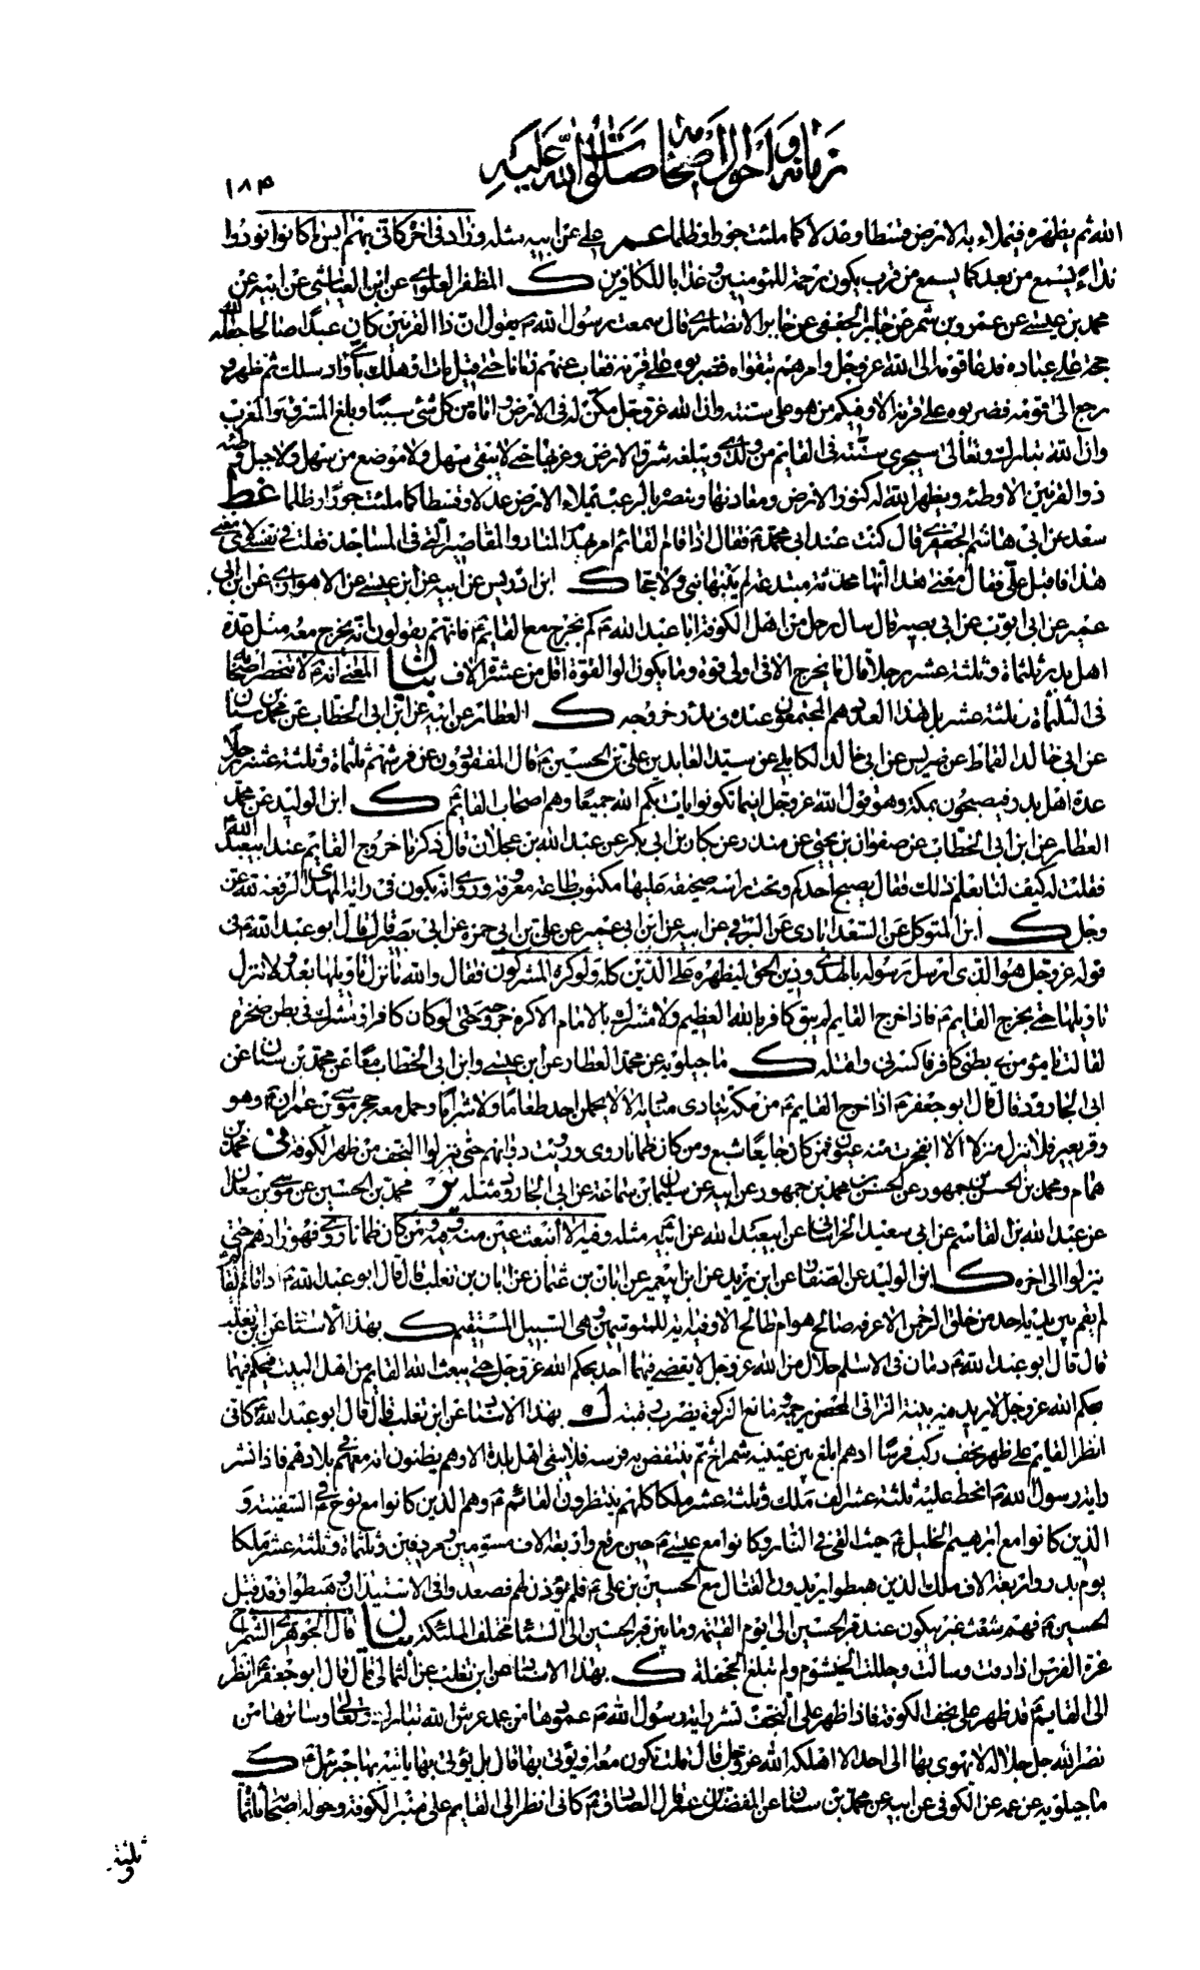 زمانه و احوال اصحابه صلوات الله عليه
١٨۴
الله ثم يظهره فيملاء به الارض قسطا وعدلا كما ملئت جورا وظلما عم علي عن ابيه مثله وزاد في اخره كاني بهم ايس ما كانوا نودوا
نداء يسمع من بعد كما يسمع من قرب يكون رحمة للمؤمنين وعذابا للكافرين ك المظفر العلوي عن ابن العياشي عن ابيه عن
محمد بن عيسى عن عمرو بن شمر عن جابر الجعفي عن جابر الانصاري قال سمعت رسول الله ص يقول ان ذا القرنين كان عبدا صالحا جعله الله
حجة على عباده فدعا قومه الى الله عز وجل وامرهم بتقواه فضربوه على قرنه فغاب عنهم زمانا حتى قيل مات او هلك باي واد سلك ثم ظهر و
رجع الى قومه فضربوه على قرنه الا وفيكم من هو على سنته وان الله عز وجل مكن له في الارض واتاه من كل شئ سببا وبلغ المشرق والمغرب
وان الله تبارك وتعالى سيجري سنته في القايم من ولدي ويبلغه شرق الارض وغربها حتى لا يبقى سهل ولا موضع من سهل ولا جبل وطئه
ذو القرنين الا وطئه ويظهر الله له كنوز الارض ومعادنها وينصره بالرعب يملاء الارض عدلا وقسطا كما ملئت جورا وظلما غط
سعد عن ابي هاشم الجعفري قال كنت عند ابي محمد ع فقال اذا قام القائم امر بهدم المنار والمقاصير التي في المساجد فقلت في نفسي لاي معنى
هذا فاقبل علي فقال معنى هذا انها محدثة مبتدعة لم يبنها نبي ولا حجة ك ابن ادريس عن ابيه عن ابن عيسى عن الاهوازي عن ابن ابي
عمير عن ابي ايوب عن ابي بصير قال سال رجل من اهل الكوفة ابا عبد الله ع كم يخرج مع القايم ع فانهم يقولون انه يخرج معه مثل عدة
اهل بدر ثلثماة وثلثة عشر رجلا قال ما يخرج الا في اولي قوة وما يكون اولو القوة اقل من عشرة الاف بيان المعنى انه ع لا تنحصر اصحابه
في الثلثماة وثلثة عشر بل هذا العدد هم المجتمعون عنده في بدو خروجه ك العطار عن ابيه عن ابن ابي الخطاب عن محمد بن سنان
عن ابي خالد القماط عن ضريس عن ابي خالد الكابلي عن سيد العابدين علي بن الحسين ع قال المفقودون عن فرشهم ثلثماة وثلثة عشر رجلا
عدة اهل بدر فيصبحون بمكة وهو قول الله عز وجل اينما تكونوا يات بكم الله جميعا وهم اصحاب القائم ك ابن الوليد عن محمد
العطار عن ابن ابي الخطاب عن صفوان بن يحيى عن منذر عن بكار بن ابي بكر عن عبد الله بن عجلان قال ذكرنا خروج القايم عند ابي عبد الله
فقلت له كيف لنا نعلم ذلك فقال يصبح احدكم وتحت راسه صحيفة عليها مكتوب طاعة معروفة وروي انه يكون في راية المهدي الرفعة لله عز
وجل ك ابن المتوكل عن السعدابادي عن البرقي عن ابيه عن ابن ابي عمير عن علي بن ابي حمزة عن ابي بصير قال قال ابو عبد الله ع في
قوله عز وجل هو الذي ارسل رسوله بالهدى ودين الحق ليظهره على الدين كله ولو كره المشركون فقال والله ما نزل تاويلها بعد ولا نزل
تاويلها حتى يخرج القايم ع فاذا خرج القايم لم يبق كافر بالله العظيم ولا مشرك بالامام الا كره خروجه حتى لو كان كافر او مشرك في بطن صخرة
لقالت يا مؤمن في بطني كافر فاكسرني واقتله ك ماجيلويه عن محمد العطار عن ابن عيسى وابن ابي الخطاب معا عن محمد بن سنان عن
ابي الجارود قال قال ابو جعفر ع اذا خرج القايم ع من مكة ينادي مناديه الا لا يحملن احد طعاما ولا شرابا وحمل معه حجر موسى بن عمران ع وهو
وقر بعير فلا ينزل منزلا الا انفجرت منه عيون فمن كان جايعا شبع ومن كان ظمانا روى ورويت دوابهم حتى ينزلوا النجف من ظهر الكوفة ني محمد بن
همام ومحمد بن الحسن بن جمهور عن الحسن بن محمد بن جمهور عن ابيه عن سليمان بن سماعة عن ابي الجارود مثله ير محمد بن الحسين عن موسى بن سعدان
عن عبد الله بن القاسم عن ابي سعيد الخراساني عن ابي عبد الله عن ابيه مثله وفيه الا انبعث عين منه وفيه ومن كان ظمانا روى فهو زادهم حتى
ينزلوا الى اخره ك ابن الوليد عن الصفار عن ابن يزيد عن ابن ابي عمير عن ابان بن عثمان عن ابان بن تغلب قال قال ابو عبد الله ع اذا قام القائم
لم يقم بين يديه احد من خلق الرحمن الا عرفه صالح هو ام طالح الا وفيه اية للمتوسمين وهي السبيل المستقيم ك بهذا الاسناد عن ابن تغلب
قال قال ابو عبد الله ع دمان في الاسلم حلال من الله عز وجل لا يقضي فيهما احد بحكم الله عز وجل حتى يبعث الله القايم من اهل البيت فيحكم فيهما
بحكم الله عز وجل لا يريد فيه بينة الزاني المحصن يرجمه ومانع الزكوة يضرب رقبته ك بهذا الاسناد عن ابن تغلب قال قال ابو عبد الله ع كاني
انظر القايم على ظهر نجف ركب فرسا ادهم ابلغ بين عينيه شمراخ ثم ينتفض به فرسه فلا يبقى اهل بلدة الا وهم يظنون انه معهم في بلادهم فاذا نشر
راية رسول الله ص انحط عليه ثلثة عشر الف ملك وثلثة عشر ملكا كلهم ينتظرون القائم ع وهم الذين كانوا مع نوح ع في السفينة و
الذين كانوا مع ابرهيم الخليل ع حيث القي في النار وكانوا مع عيسى ع حين رفع واربعة الاف مسومين ومردفين وثلثماة وثلثة عشر ملكا
يوم بدر واربعة الاف ملك الذين هبطوا يريدون القتال مع الحسين بن علي ع فلم يؤذن لهم فصعدوا في الاستيذان وهبطوا وقد قتل
الحسين ع فهم شعث غبر يبكون عند قبر الحسين الى يوم القيمة وما بين قبر الحسين الى السماء مختلف الملئكة بيان قال الجوهري الشمراخ
غرة الفرس اذا دقت وسالت وجللت الخيشوم ولم تبلغ الجحفلة ك بهذا الاسناد عن ابن تغلب عن الثمالي قال قال ابو جعفر ع انظر
الى القايم ع قد ظهر على نجف الكوفة فاذا ظهر على النجف نشر راية رسول الله ص عمودها من عمد عرش الله تبارك وتعالى وسائرها من
نصر الله جل جلاله لا يهوى بها الى احد الا اهلكه الله عز وجل قال قلت تكون معه او يؤتى بها قال بل يؤتى بها ياتيه بها جبرئيل ع ك
ماجيلويه عن عمه عن الكوفي عن ابيه عن محمد بن سنان عن المفضل بن عمر قال قال الصادق ع كاني انظر الى القايم على منبر الكوفة وحوله اصحابه ثلثماة
وثلثة